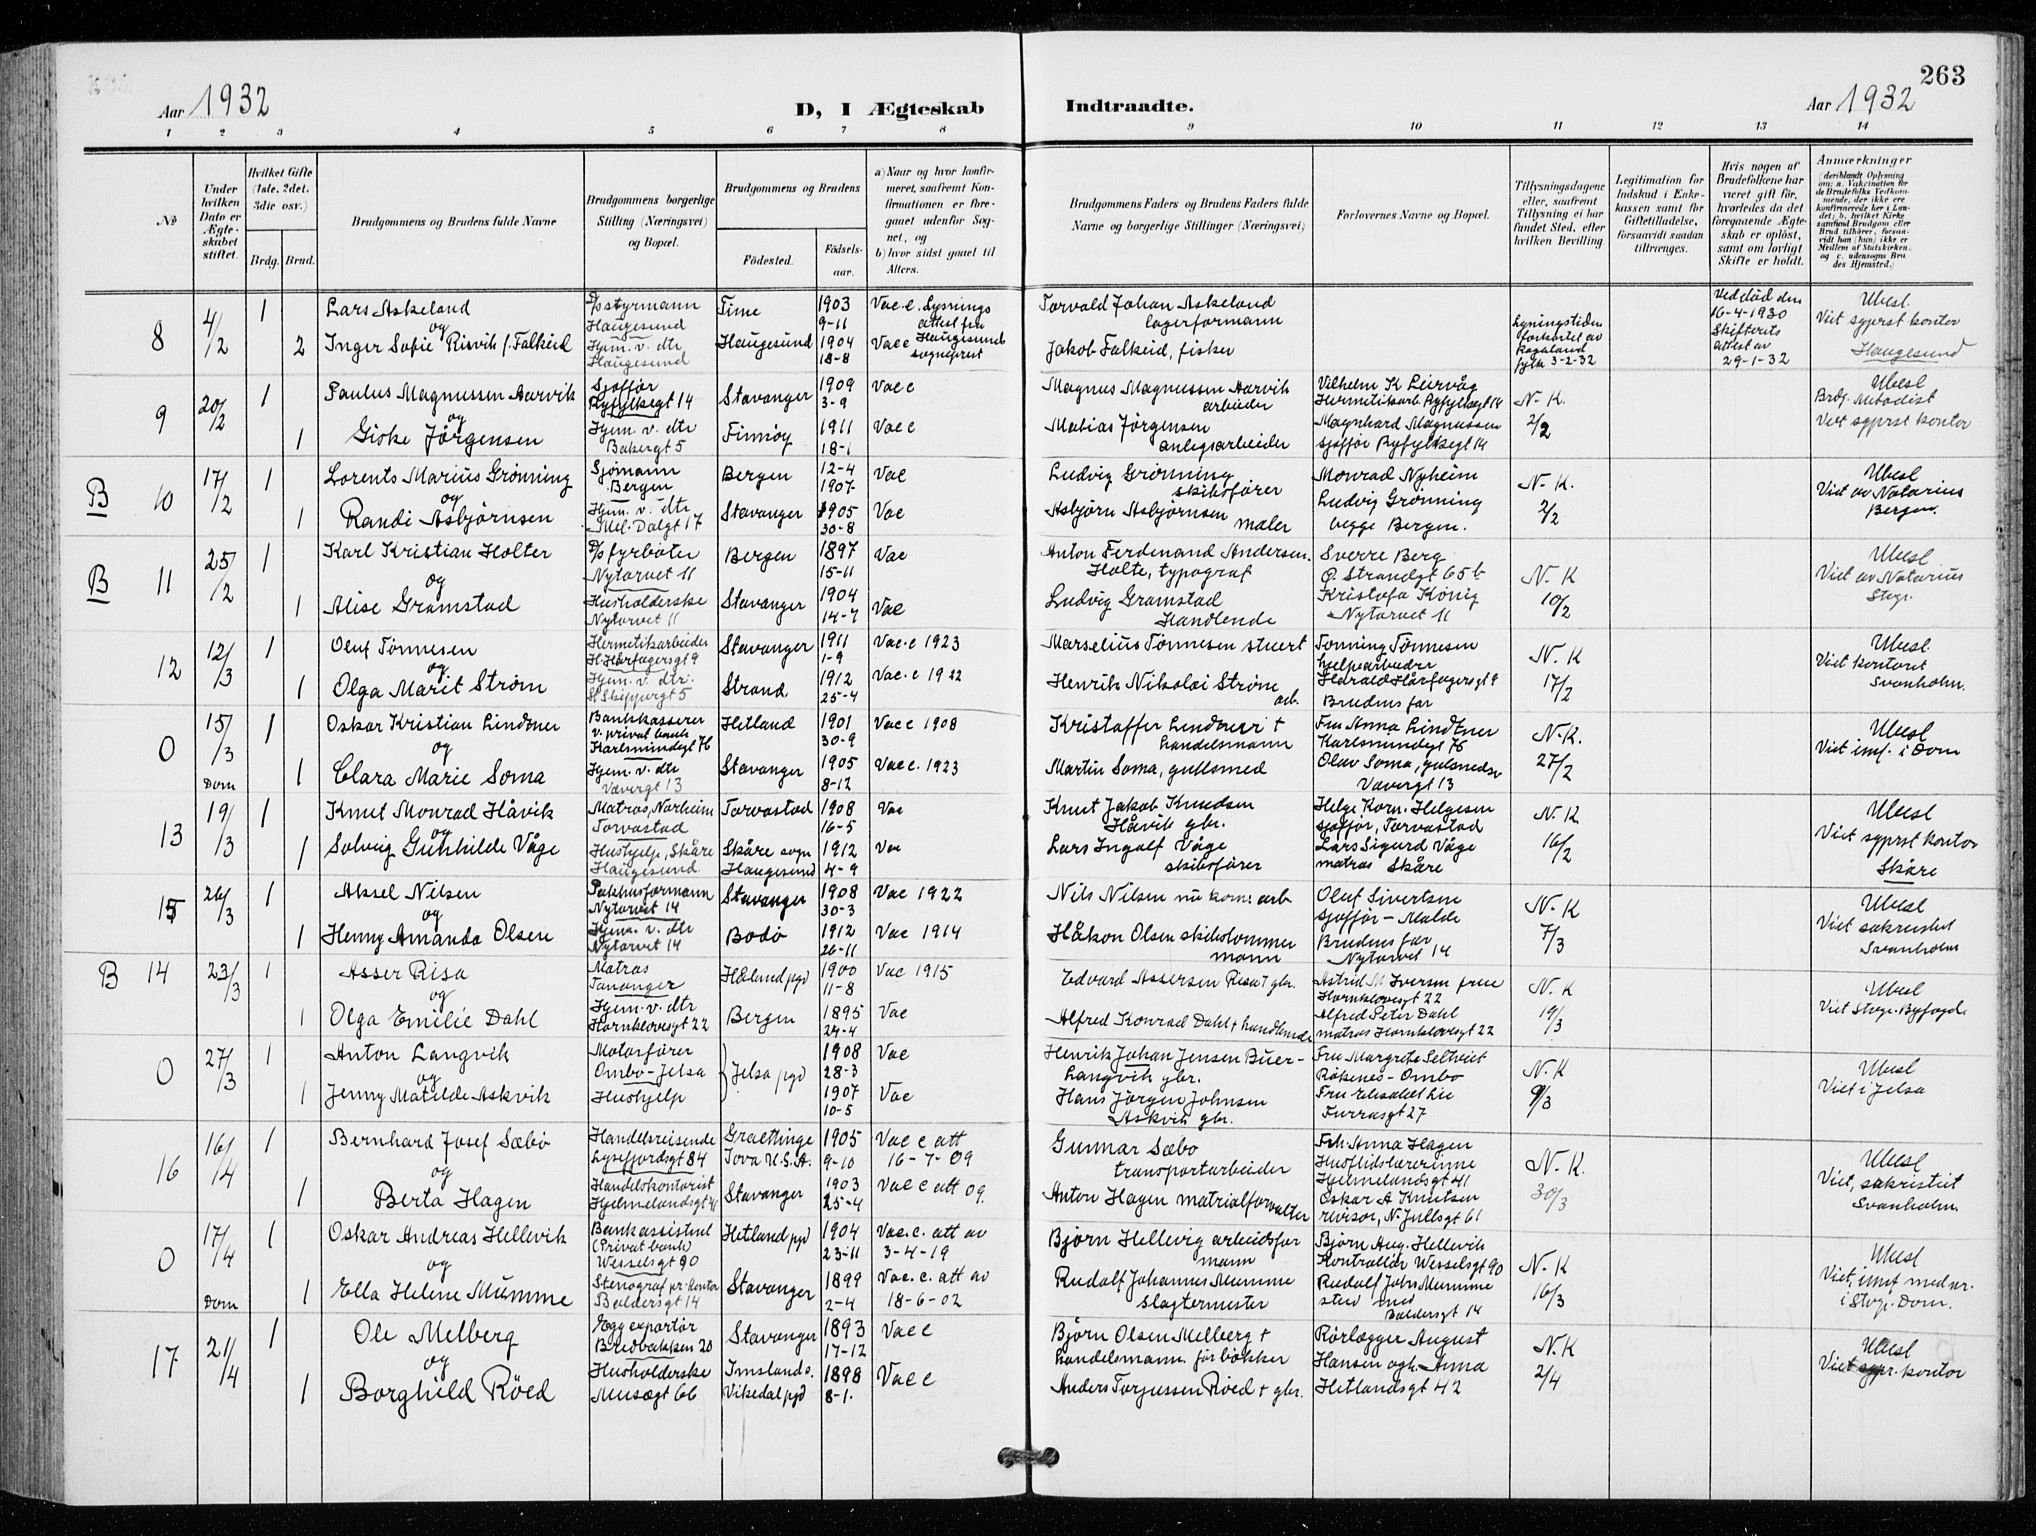 263
Aar 1932
D, I Ægteskab Indtraadte.
Aar 1932
1 2 3 4 5 6 7 8 9 10 11 12 13 14
No
Under hvilken Dato er Ægteskabet stiftet.
Hvilket Gifte (1ste, 2det, 3die osv.)
Brdg. Brud.
Brudgommens og Brudens fulde Navne
Brudgommens borgerlige Stilling (Næringsvei) og Bopæl.
Brudgommens og Brudens
Födested.
Födselsaar.
a) Naar og hvor konfirmeret, saafremt Konfirmationen er foregaaet udenfor Sognet, og
b) hvor sidst gaaet til Alters.
Brudgommens Faders og Brudens Faders fulde Navne og borgerlige Stillinger (Næringsvei)
Forlovernes Navne og Bopæl.
Tillysningsdagene eller, saafremt Tillysning ei har fundet Sted, efter hvilken Bevilling.
Legitimation for Indskud i Enkekassen samt for Giftetilladelse, forsaavidt saadan tiltrænges.
Hvis nogen af Brudefolkene har været gift før, hvorledes da det foregaaende Ægteskab er oplöst, samt om lovligt Skifte er holdt.
Anmærkninger
(deriblandt Oplysning om: a. Vakcination for de Brudefolks Vedkommende, der ikke ere konfirmerede her i Landet; b. hvilket Kirkesamfund Brudgom eller Brud tilhörer, forsaavidt han (hun) ikke er Medlem af Statskirken, og c. udensogns Brudes Hjemsted.)
8 4/2 1 Lars Askeland D/s styrmann Haugesund Time 1903 9-11 Vac.c. Lysningsattest fra Haugesund sogneprest Torvald Johan Askeland lagerformann
og
2 Inger Sofie Risvik f. Falkeid Hjem. v. dtr Haugesund Haugesund 1904 18-8 Vacc Jakob Falkeid, fisker
Lysningstiden forkortet av Rogaland fylk 3-2-32
Ved död den 16-4-1930 Skifterets attest av 29-1-32
Ubesl. Viet sgprst kontor Haugesund
9 20/2 1 Paulus Magnussen Aarvik Sjåfför Ryfylkegt 14 Stavanger 1909 3-9 Vacc Magnus Magnussen Aarvik arbeider Vilhelm K Leirvåg Hermetikarb. Ryfylkegt 14 N-K.
og
1 Giske Jørgensen Hjem. v. dtr Bakergt 5 Finnøy 1911 18-1 Vacc Matias Jørgensen anlegsarbeider Magnhard Magnussen sjåfför Ryfylkegt 14 2/2
Ubesl Brdg. Metodist Viet sgprst kontor
B 10 17/2 1 Lorents Marius Grønning Sjømann Bergen Bergen 12-4 1907 Vac Ludvig Grønning skibsfører Monrad Nyheim N-K.
og
1 Randi Asbjørnsen Hjem. v. dtr Mel. Dalgt 17 Stavanger 1905 30-8 Vac Asbjørn Asbjørnsen maler Ludvig Grønning begge Bergen. 2/2
Ubesl Viet av Notarius Bergen.
B 11 25/2 1 Karl Kristian Holter D/s fyrbøter Nytorvet 11 Bergen 1897 15-11 Vac Anton Ferdinand Andersen Holte, typograf Sverre Berg Ø. Strandgt 65b N-K
og
1 Alise Gramstad Husholderske Nytorvet 11 Stavanger 1904 14-7 Vac Ludvig Gramstad Handlende Kristofa König Nytorvet 11 10/2
Ubesl Viet av Notarius Stvgr.
12 12/3 1 Oluf Tønnesen Hermetikarbeider H. Hårfagersgt 9 Stavanger 1911 1-9 Vac.c 1923 Marselius Tønnesen stuert Tønning Tønnesen hjelpearbeider Harald Hårfagersgt 9 N.K
og
1 Olga Marit Strøm Hjem. v. dtr. St. Skippergt 5 Strand 1912 25-4 Vac.c 1922 Henrik Nikolai Strøm arb. Brudens far 17/2
Ubesl. Viet kontoret Svanholm.
0 15/3 Dom 1 Oskar Kristian Lindtner Bankkasserer v. privat bank Karlsmindegt 76 Hetland 1901 30-9 Vacc 1908 Kristoffer Lindtner + handelsmann Fru Anna Lindtner Karlsmindegt 76 N-K.
og
1 Clara Marie Soma Hjem. v. dtr Vævergt 13 Stavanger 1905 8-12 Vacc. 1923 Martin Soma, gullsmed Olav Soma, gulsmedsv Vævergt 13 27/2
Ubesl Viet imf. i Dom
13 19/3 1 Knut Monrad Håvik Matros, Norheim Torvastad Torvastad 1908 16-5 Vac Knut Jakob Knudsen Håvik gbr. Helge Korn. Helgesen sjåfför, Torvastad N.K
og
1 Solveig Gunhilde Våge Hushjelp, Skåre Haugesund. Skåre sogn Haugesund 1912 4-9 Vac Lars Ingolf Våge skibsfører Lars Sigurd Våge matros Skåre 16/2
Ubesl Viet sgprst kontor Skåre
15 26/3 1 Aksel Nilsen Pakhusformann Nytorvet 14 Stavanger 1908 30-3 Vac 1922 Nils Nilsen nu kom. arb Oluf Sivertsen sjåfför - Malde N-K
og
1 Henny Amanda Olsen Hjem. v. dtr Nytorvet 14 Bodø 1912 26-11 Vac 1914 Håkon Olsen skibstømmermann Brudens far Nytorvet 14 7/3
Ubesl Viet sakristiet Svanholm
B 14 23/3 1 Asser Risa Matros Tananger Håland pgd 1900 11-8 Vac 1915 Edvard Assersen Risa + gbr. Astrid M Iversen frue Hornklovesgt 22 N.K
og
1 Olga Emilie Dahl Hjem. v. dtr Hornklovesgt 22 Bergen 1895 24-4 Vac Alfred Konrad Dahl + handlende Alfred Peter Dahl matros Hornklovesgt 22 19/3
Ubesl Viet Stvgr. Byfogd.
0 27/3 1 Anton Langvik Motorfører Ombo-Jelsa Jelsa pgd 1908 28-3 Vac Henrik Johan Jensen Buer-Langvik gbr. Fru Margrete Seltveit Røkenes-Ombo N.K
og
1 Jenny Matilde Askvik Hushjelp 1907 10-5 Vac Hans Jørgen Johnsen Askvik gbr. Fru Elisabet Lie Furrasgt 27 9/3
Ubesl Viet i Jelsa
16 16/4 1 Bernhard Josef Sæbø Handelsreisende Lysefjordsgt 84 Graettinge Iova U.S.A. 1905 9-10 Vac c att 16-7-09 Gunnar Sæbø transportarbeider Frk. Anna Hagen Husflidslærerinne Hjelmelandsgt 41 N.K.
og
1 Berta Hagen Handelskontorist Hjelmelandsgt 41 Stavanger 1903 25-4 Vac c att 09. Anton Hagen matrialforvalter Oskar A Knutsen revisor, N. Jullsgt 61 30/3
Ubesl Viet, sakristiet Svanholm.
0 17/4 Dom 1 Oskar Andreas Hellevik Bankassistent (Privat bank) Wesselsgt 90 Hetland pgd 1904 23-11 Vac.c. att av 3-4-19 Bjørn Hellevig arbeidsformann Bjørn Aug. Hellevik Kontrollør Wesselsgt 90 N-K
og
1 Ella Helene Mumme Stenograf pr. kontor Baldersgt 14 Stavanger 1899 2-4 Vac. c. att av 18-6-02 Rudolf Johannes Mumme slagtermester Rudolf Johs Mumme stud med Baldersgt 14 16/3
Ubesl Viet, imf med nr. i Stvgr. Dom.
17 21/4 1 Ole Melberg Eggexportør Bredbakken 20 Stavanger 1893 17-12 Vacc Bjørn Olsen Melberg + handelsmann før bøkker Rørlægger August Hansen ogh. Anna Hetlandsgt 42 N.K
og
1 Borghild Røed Husholderske Musægt 66 Imslands. Vikedal pgd 1898 8-1. Vacc Anders Torjussen Røed + gbr. 2/4
Ubesl Viet sgpr. kontor